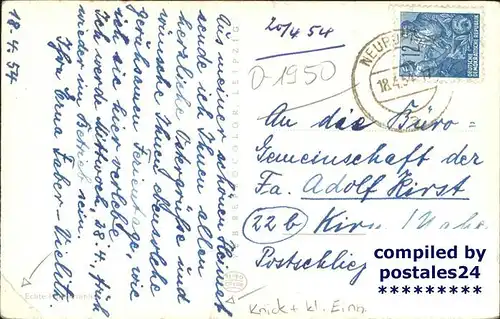 18.4.54
Aus meiner schönen Heimat
sende ich Ihnen allen
herzliche Ostergrüße und
wünsche Ihnen ebensolche
geruhsamen Feiertage, wie
ich sie hier verlebe.
Ich werde Mittwoch, 28.4., früh
wieder im Betrieb sein.
Ihre Erna Faber-
20/4 54
D-1950
NEURUPPIN
18.4.54
12
DEUTSCHE
DEMOKRATISCHE
REPUBLIK
An die Büro-
Gemeinschaft der
Fa. Adolf Kirst
22b Kirn / Nahe
Postschließ
Echte
Knick + kl. Einr.
compiled by
postales24
*********